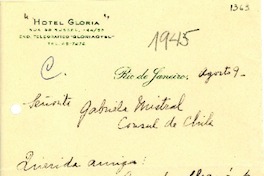 1363
"HOTEL GLORIA"
RUA DO RUSSEL,
END. TELEGRAFICO "GLORIAOTEL"
TEL. 25-7272
1945
C.
Rio de Janeiro, Agosto 9-
Señorita Gabriela Mistral
Consul de Chile
Querida amiga: